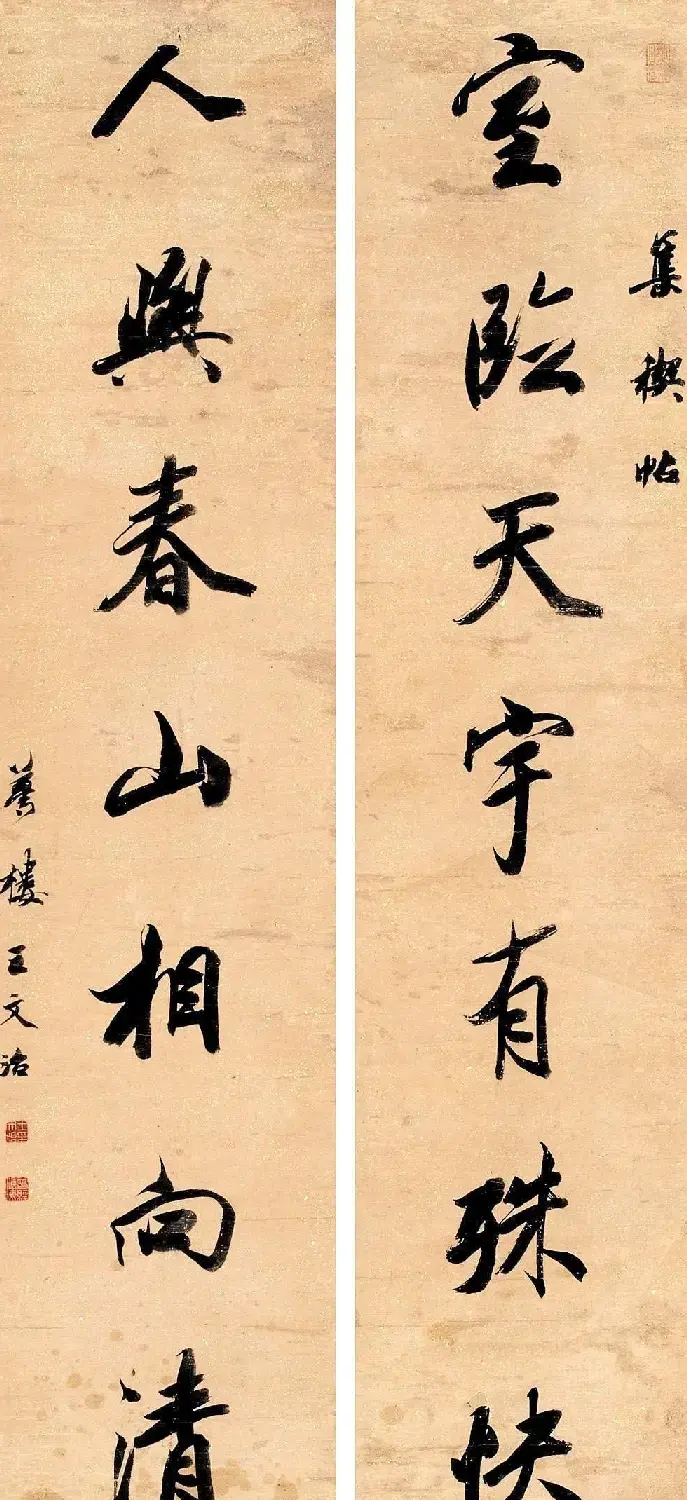 集禊帖
室臨天宇有殊快
人與春山相向清
夢樓王文治